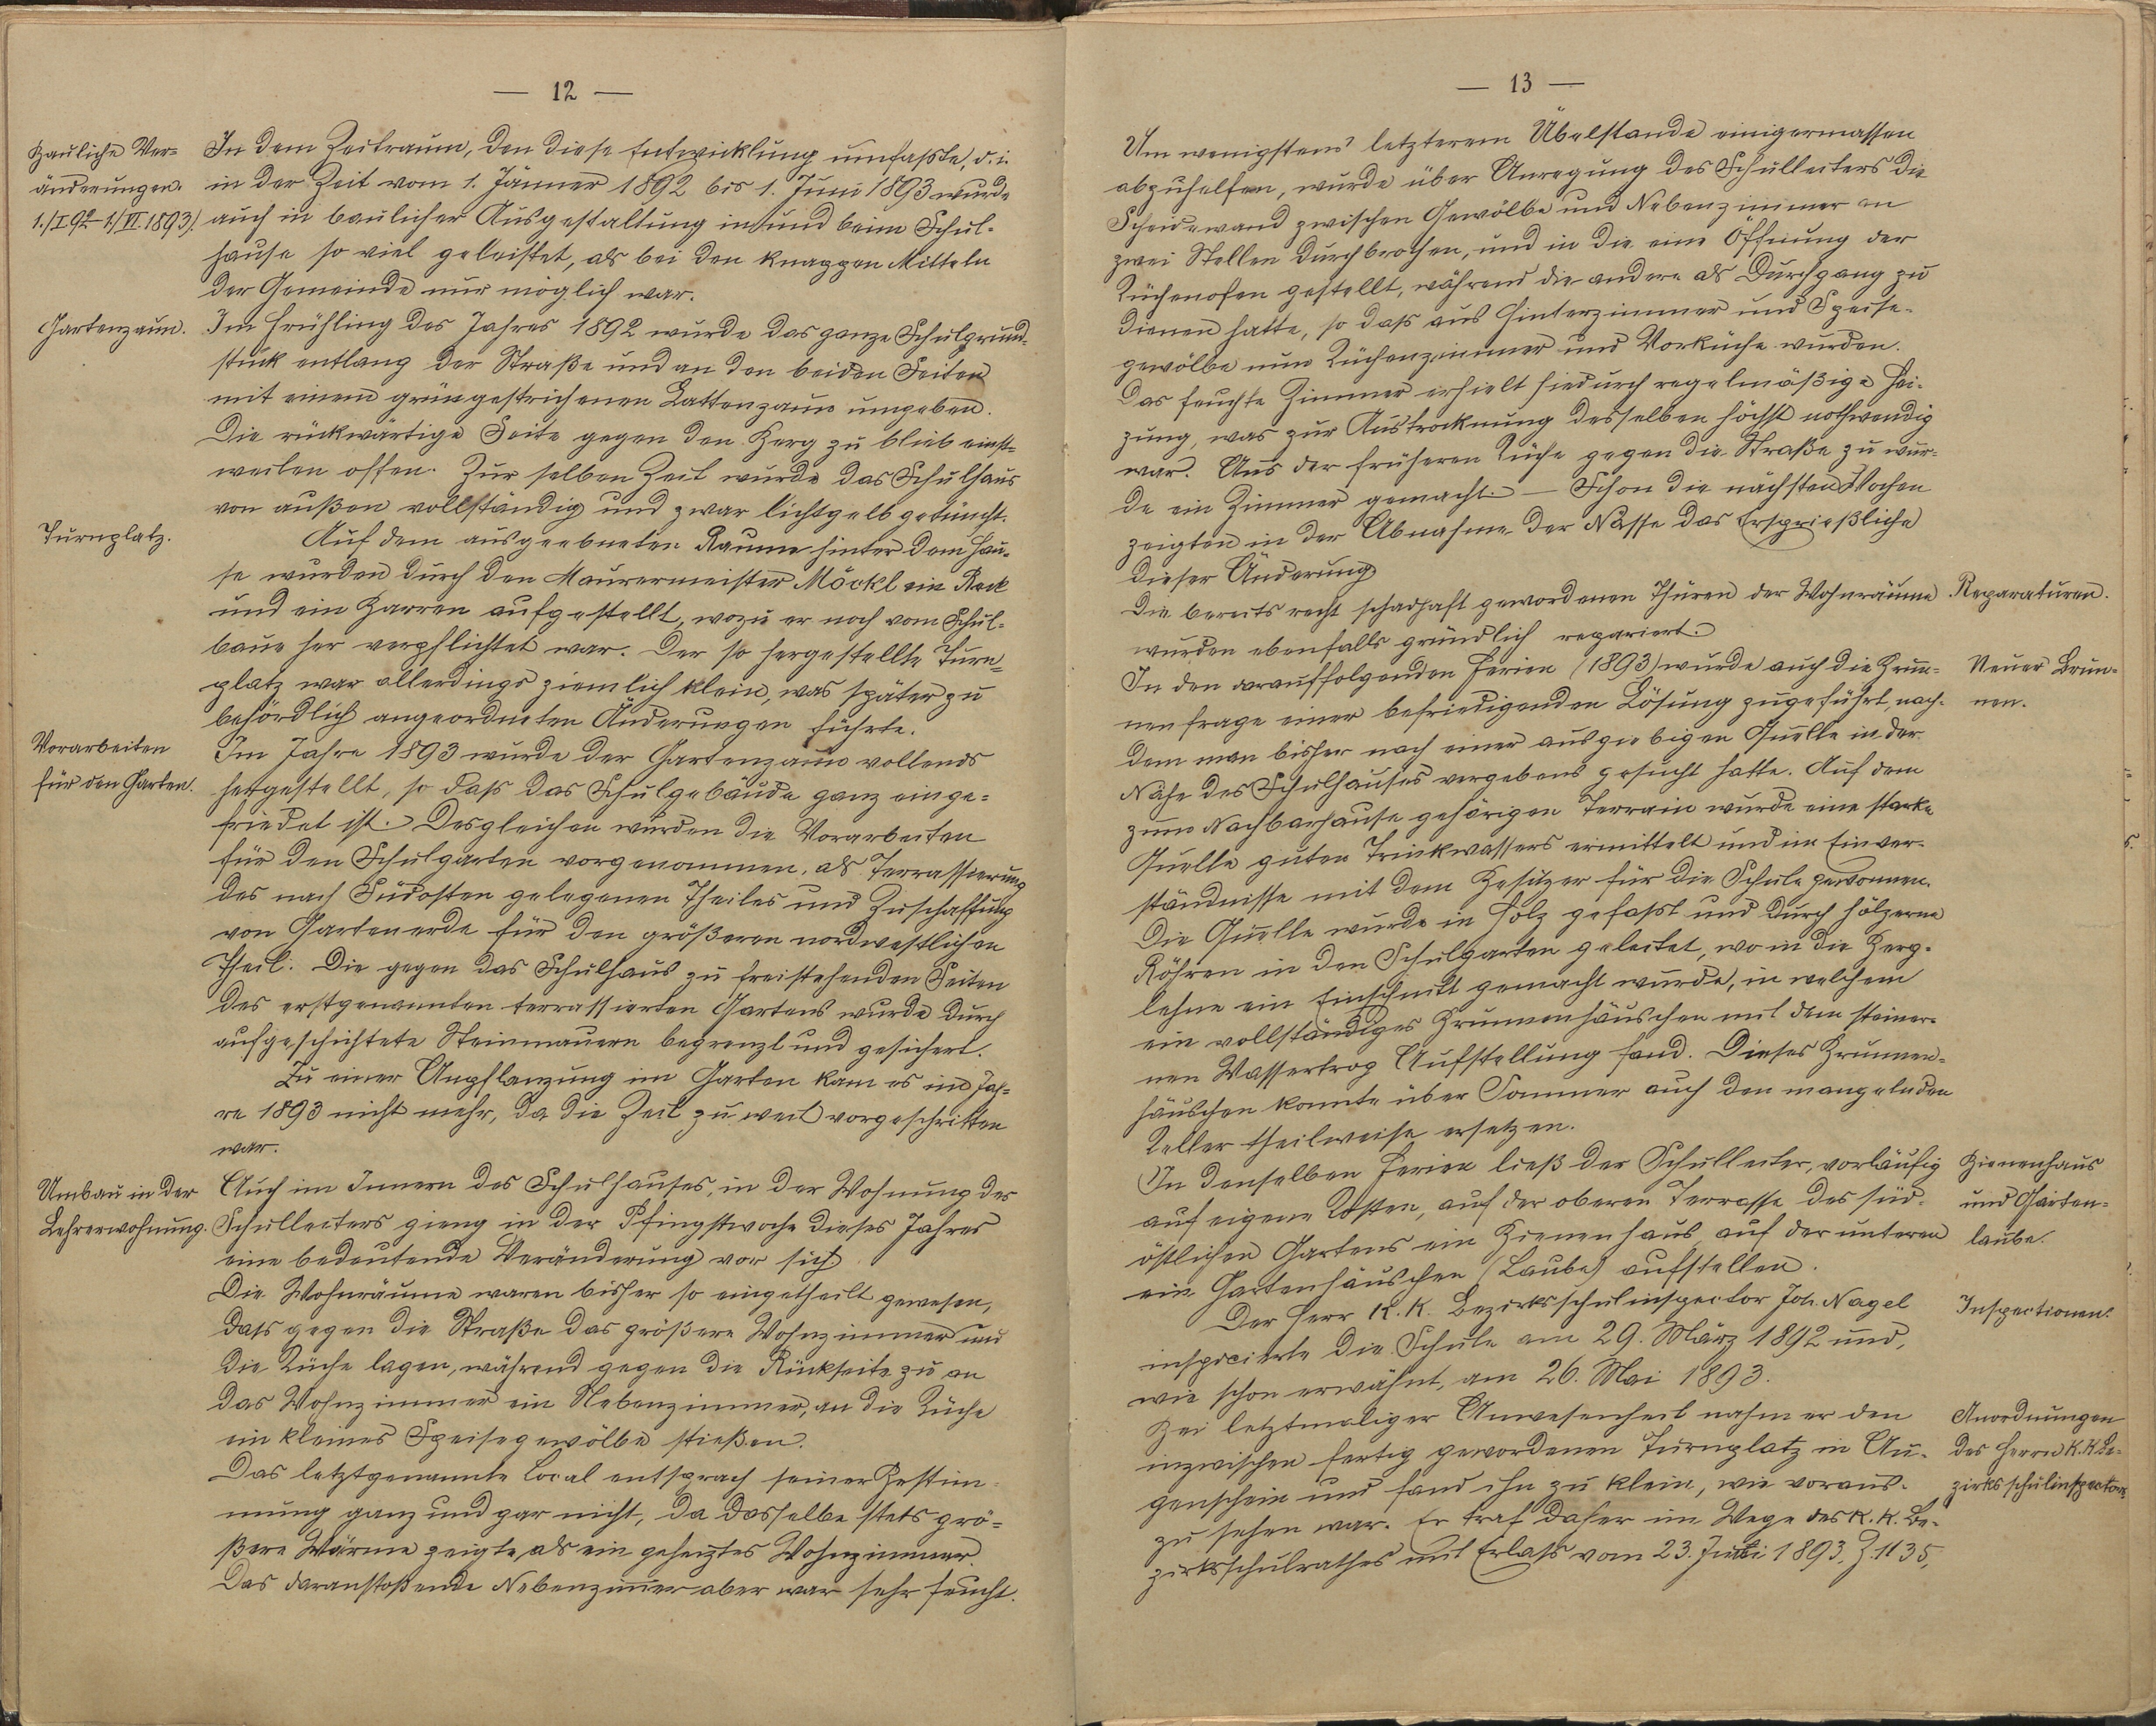 — 12 —
Bauliche Ver-
änderungen.
1./I.92–1/VI.1893).
In dem Zeitraum, den diese Entwicklung umfasste, d. i.
in der Zeit vom 1. Jänner 1892 bis 1. Juni 1893 wurde
auch in baulicher Ausgestaltung in und beim Schul-
hause so viel geleistet, als bei den knappen Mitteln
der Gemeinde nur möglich war.
Gartenzaun.
Im Frühling des Jahres 1892 wurde das ganze Schulgrund-
stück entlang der Straße und an den beiden Seiten
mit einem grüngestrichenen Lattenzaun umgeben.
Die rückwärtige Seite gegen den Berg zu blieb einst-
weilen offen. Zur selben Zeit wurde das Schulhaus
von außen vollständig und zwar lichtgelb getüncht.
Turnplatz.
Auf dem ausgeebneten Raume hinter dem Hau-
se wurden durch den Maurermeister Möckl ein Reck
und ein Barren aufgestellt, wozu er noch vom Schul-
baue her verpflichtet war. Der so hergestellte Turn-
platz war allerdings ziemlich klein, was später zu
behördlich angeordneten Änderungen führte.
Vorarbeiten
für den Garten.
Im Jahre 1893 wurde der Gartenzaun vollends
hergestellt, so dass das Schulgebäude ganz einge-
friedet ist. Desgleichen wurden die Vorarbeiten
für den Schulgarten vorgenommen, als Terrassierung
des nach Südosten gelegenen Theiles und Zuschaffung
von Gartenerde für den größeren nordwestlichen
Theil. Die gegen das Schulhaus zu freistehenden Seiten
des erstgenannten terrassierten Gartens wurde durch
aufgeschichtete Steinmauern begrenzt und gesichert.
Zu einer Anpflanzung im Garten kam es im Jah-
re 1893 nicht mehr, da die Zeit zu weit vorgeschritten
war.
Umbau in der
Lehrerwohnung.
Auch im Innern des Schulhauses, in der Wohnung des
Schulleiters gieng in der Pfingstwoche dieses Jahres
eine bedeutende Veränderung vor sich.
Die Wohnräume waren bisher so eingetheilt gewesen,
dass gegen die Straße das größere Wohnzimmer und
die Küche lagen, während gegen die Rückseite zu an
das Wohnzimmer ein Nebenzimmer, an die Küche
ein kleines Speisegewölbe stießen.
Das letztgenannte Local entsprach seiner Bestim-
mung ganz und gar nicht, da dasselbe stets grö-
ßere Wärme zeigte, als ein geheiztes Wohnzimmer.
Das daranstoßende Nebenzimmer aber war sehr feucht.
— 13 —
Um wenigstens letzterem Übelstande einigermassen
abzuhelfen, wurde über Anregung des Schulleiters die
Scheidewand zwischen Gewölbe und Nebenzimmer an
zwei Stellen durchbrochen, und in die eine Öffnung der
Küchenofen gestellt, während die andere als Durchgang zu
dienen hatte, so dass aus Hinterzimmer und Speise-
gewölbe nun Küchenzimmer und Vorküche wurden.
Das feuchte Zimmer erhielt hiedurch regelmäßige Hei-
zung, was zur Austrocknung desselben höchst nothwendig
war. Aus der früheren Küche gegen die Straße zu wur-
de ein Zimmer gemacht. — Schon die nächsten Wochen
zeigten in der Abnahme der Nässe das Ersprießliche
dieser Änderung
Die bereits recht schadhaft gewordenen Thüren der Wohnräume
wurden ebenfalls gründlich repariert.
Reparaturen.
In den darauffolgenden Ferien (1893) wurde auch die Brun-
nenfrage einer befriedigenden Lösung zugeführt, nach-
dem man bisher nach einer ausgiebigen Quelle in der
Nähe des Schulhauses vergebens gesucht hatte. Auf dem
zum Nachbarhause gehörigen Terrain wurde eine starke
Quelle guten Trinkwassers ermittelt und im Einver-
ständnisse mit dem Besitzer für die Schule gewonnen.
Die Quelle wurde in Holz gefasst und durch hölzerne
Röhren in den Schulgarten geleitet, wo in die Berg-
lehne ein Einschnitt gemacht wurde, in welchem
ein vollständiges Brunnenhäuschen mit dem steiner-
nen Wassertrog Aufstellung fand. Dieses Brunnen-
häuschen konnte über Sommer auch den mangelnden
Keller theilweise ersetzen.
Neuer Brun-
nen.
In denselben Ferien ließ der Schulleiter, vorläufig
auf eigene Kosten, auf der oberen Terrasse des süd-
östlichen Gartens ein Bienenhaus, auf der unteren
ein Gartenhäuschen (Laube) aufstellen.
Bienenhaus
und Garten-
laube.
Der Herr K. K. Bezirksschulinspector Joh. Nagel
inspicierte die Schule am 29. März 1892 und,
wie schon erwähnt, am 26. Mai 1893.
Inspectionen.
Bei letztmaliger Anwesenheit nahm er den
inzwischen fertig gewordenen Turnplatz in Au-
genschein und fand ihn zu klein, wie voraus-
zu sehen war. Er traf daher im Wege des K. K. Be-
zirksschulrathes mit Erlass vom 23. Juni 1893, Z. 1135,
Anordnungen
des Herrn K. K. Be-
zirksschulinspectors